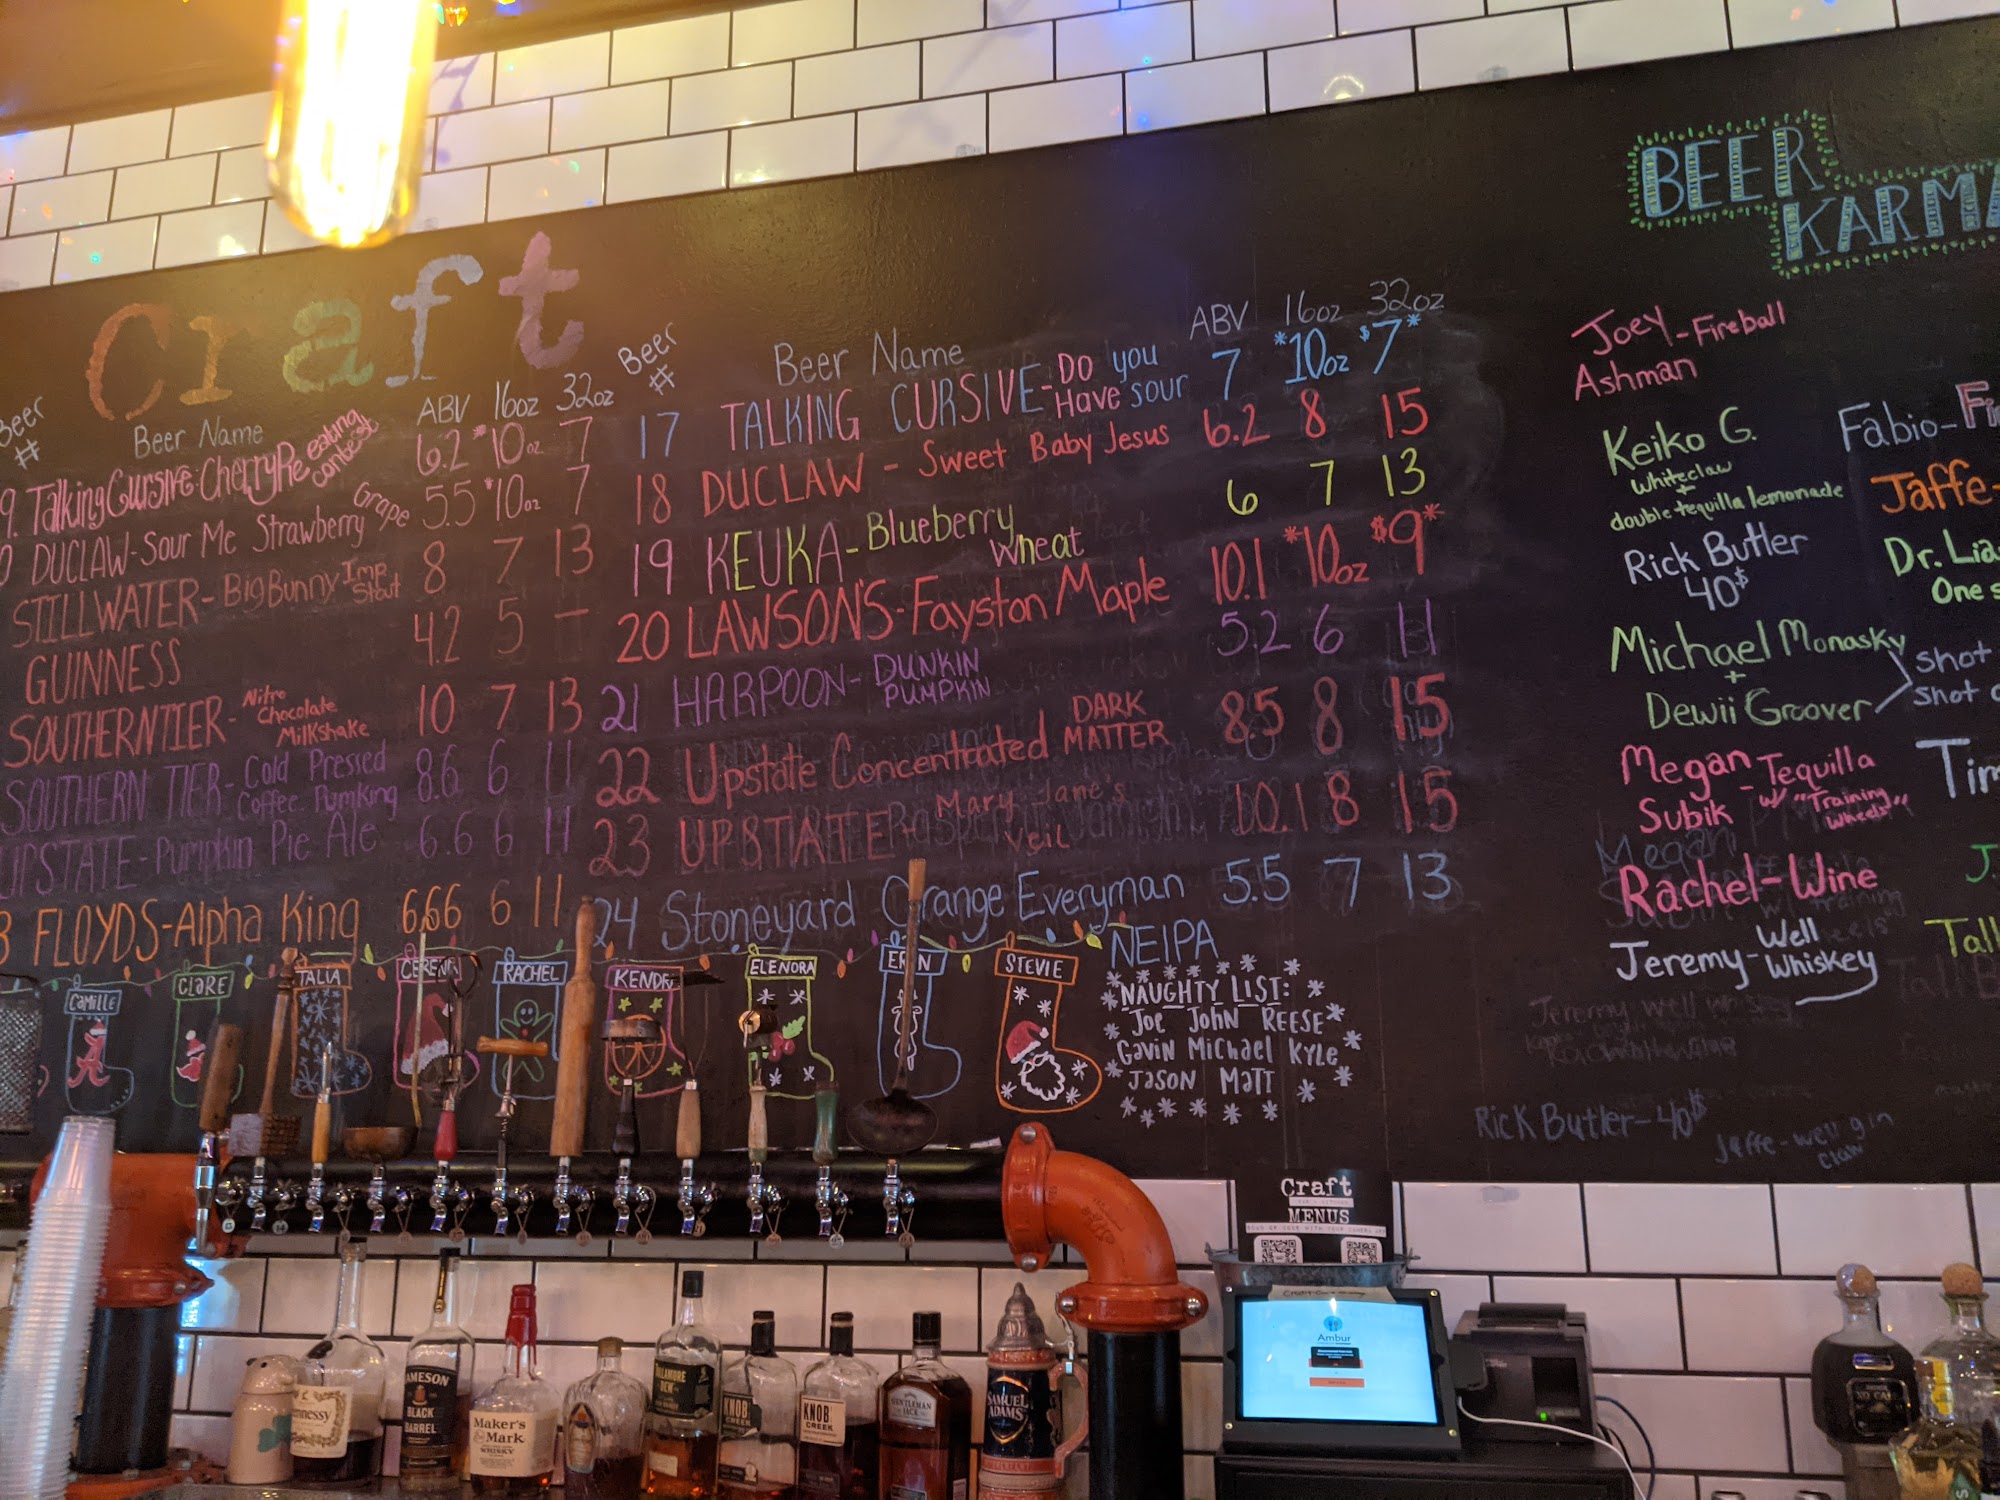 Craft
Beer # Beer Name ABV 16oz 32oz
9. Talking Cursive-CherryPie eating contest 6.2 *10oz 7
DUCLAW-Sour Me Strawberry Grape 5.5 *10oz 7
STILLWATER-Big Bunny Imp Stout 8 7 13
GUINNESS 4.2 5 —
SOUTHERNTIER-Nitro Chocolate Milkshake 10 7 13
SOUTHERN TIER-Cold Pressed Coffee Pumking 8.6 6 11
UPSTATE-Pumpkin Pie Ale 6.6 6 11
3 FLOYDS-Alpha King 6.66 6 11
Beer # Beer Name ABV 16oz 32oz
17 TALKING CURSIVE-Do you Have sour 7 *10oz $7*
18 DUCLAW - Sweet Baby Jesus 6.2 8 15
19 KEUKA-Blueberry Wheat 6 7 13
20 LAWSON'S-Fayston Maple 10.1 *10oz $9*
21 HARPOON-DUNKIN PUMPKIN 5.2 6 11
22 Upstate Concentrated DARK MATTER 8.5 8 15
23 UPSTATE-Mary Jane's Veil 10.1 8 15
24 Stoneyard Orange Everyman 5.5 7 13
NEIPA
CAMILLE
CLARE
TALIA
RACHEL
ELENORA
ERIN
STEVIE
NAUGHTY LIST:
JOE JOHN REESE
GAVIN MICHAEL KYLE
JASON MATT
BEER
KARMA
Joey-Fireball
Ashman
Keiko G.
Whiteclaw
+
double tequila lemonade
Rick Butler
40$
Michael Monasky
+
Dewii Groover
shot
shot
Megan-Tequilla
Subik w/ "Training
Wheels"
Rachel-Wine
Jeremy-Well
Whiskey
Fabio-
Jaffe-
Dr.
One
Rick Butler-40$
Jaffe-well gin
claw
Craft
MENUS
Ambur
Hennessy
JAMESON
BLACK
BARREL
Maker's
Mark
WHISKY
KNOB
CREEK
KNOB
CREEK
GENTLEMAN
JACK
SAMUEL
ADAMS